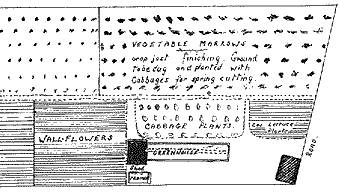 VEGETABLE MARROWS
crop just finishing. Ground
to be dug and planted with
Cabbages for spring cutting.
CABBAGE PLANTS.
Cos Lettuce
Plants
WALLFLOWERS
GREENHOUSE
Shed
Frames
ROAD.